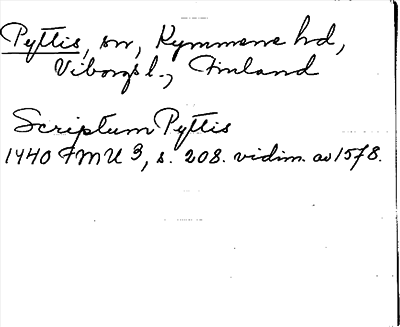 Pyttis, sn, Kymmene hd,
Viborgs l., Finland
Scriptum Pyttis
1440 FMU 3, s. 208. vidim. av 1578.